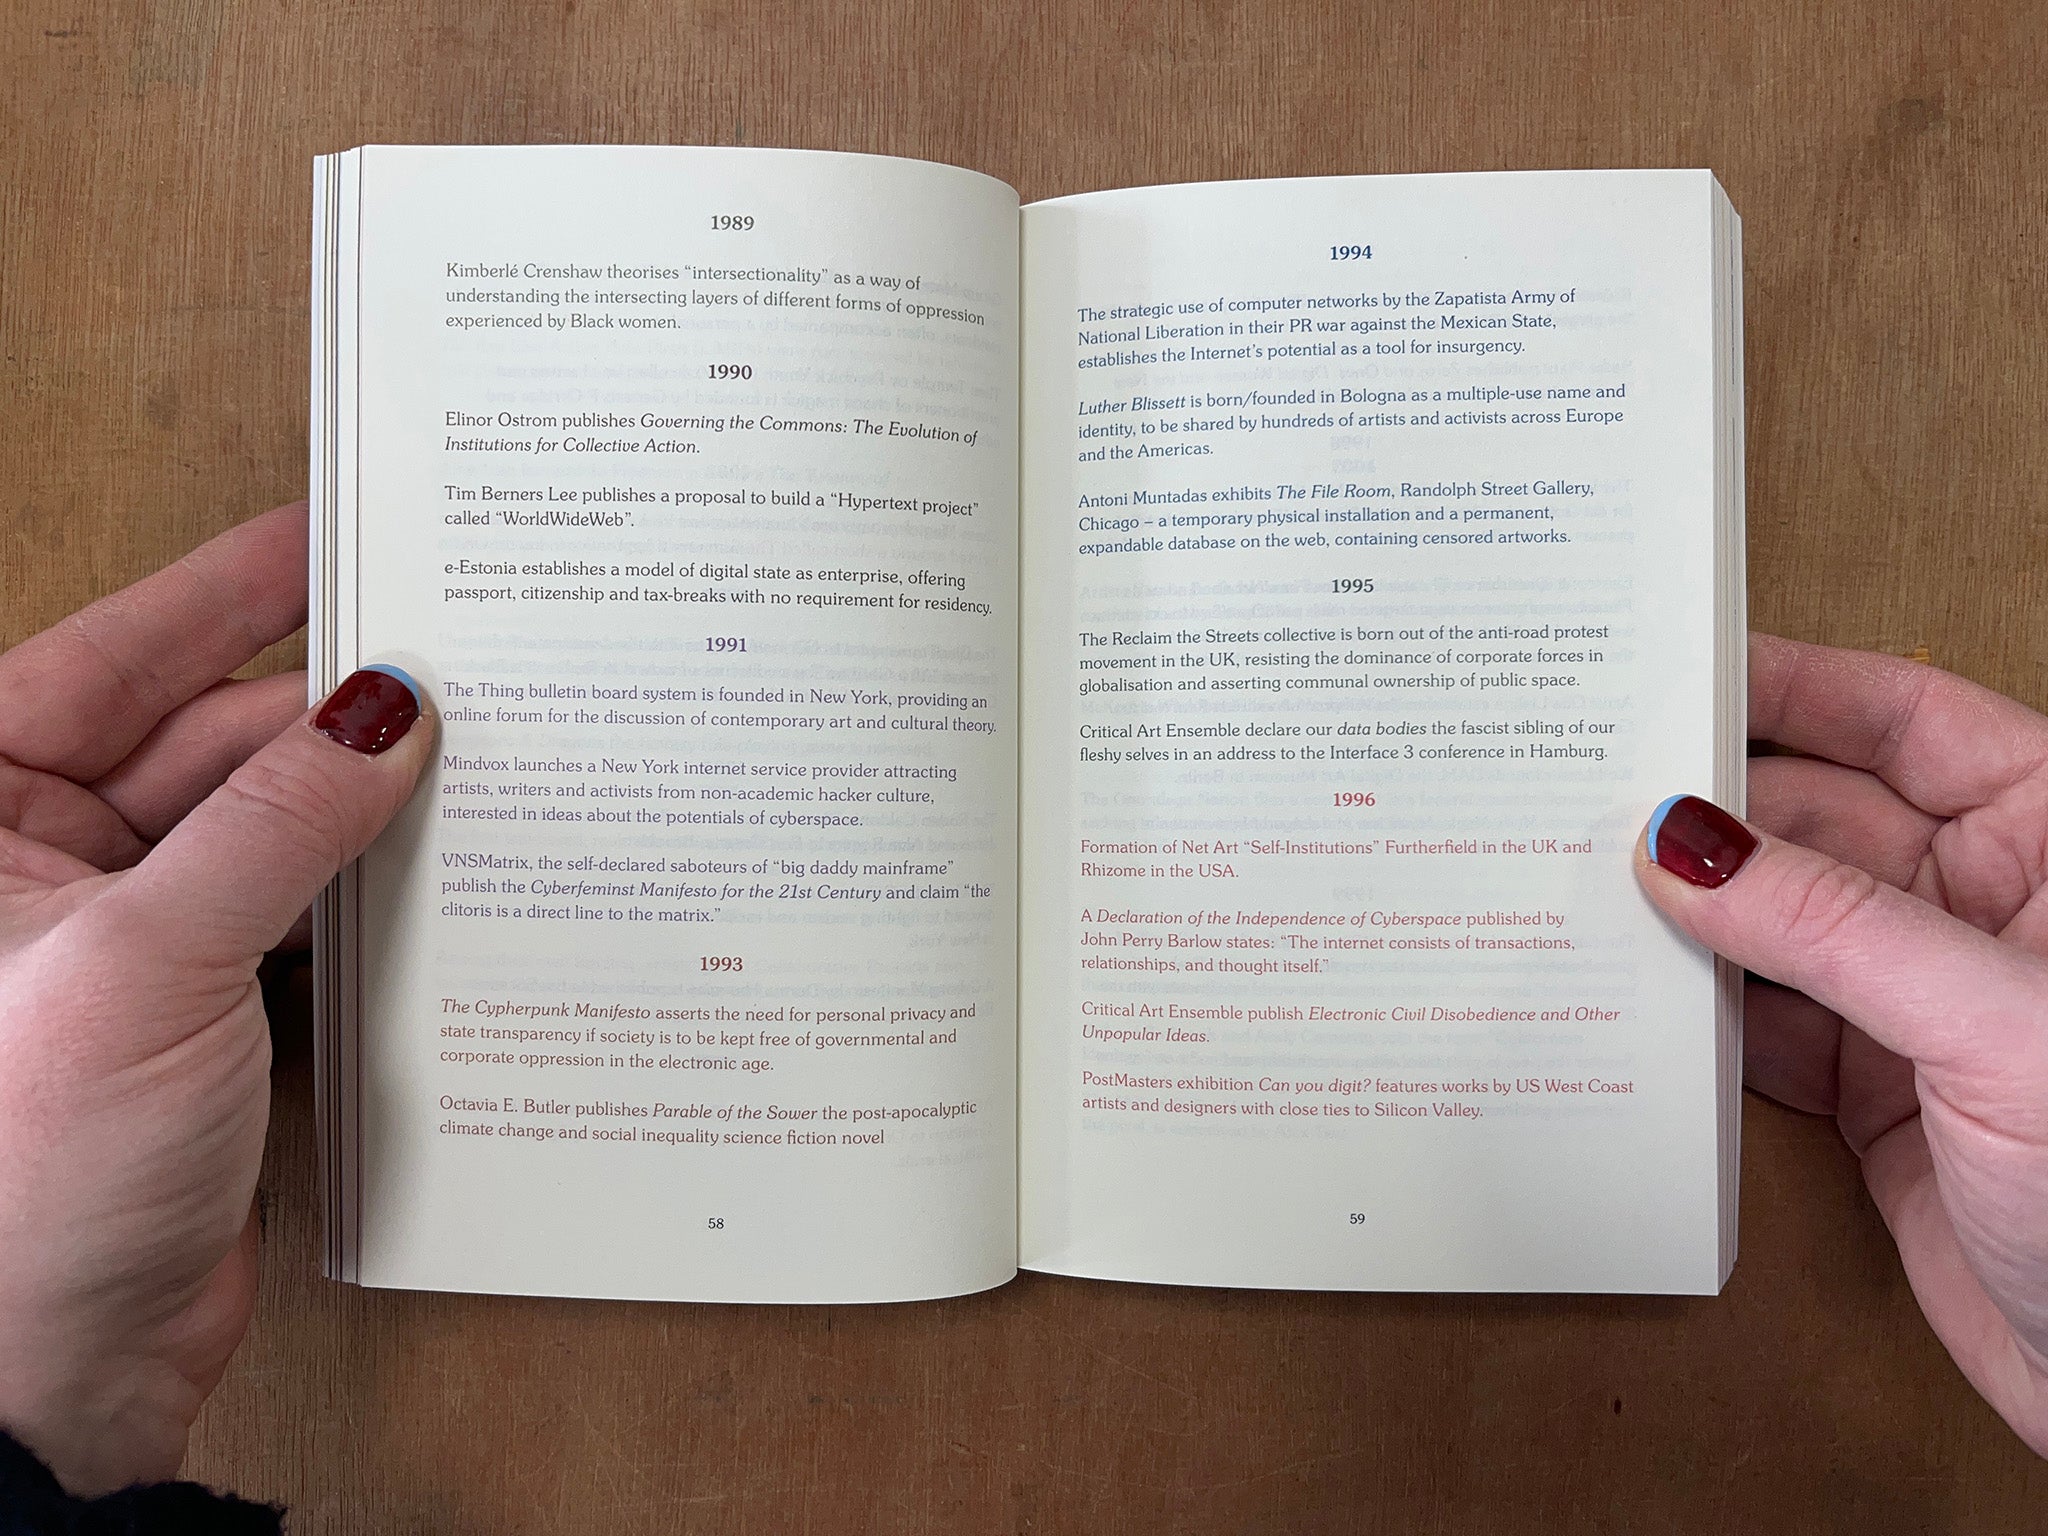 1989
Kimberlé Crenshaw theorises “intersectionality” as a way of
understanding the intersecting layers of different forms of oppression
experienced by Black women.
1990
Elinor Ostrom publishes Governing the Commons: The Evolution of
Institutions for Collective Action.
Tim Berners Lee publishes a proposal to build a “Hypertext project”
called “WorldWideWeb”.
e-Estonia establishes a model of digital state as enterprise, offering
passport, citizenship and tax-breaks with no requirement for residency.
1991
The Thing bulletin board system is founded in New York, providing an
online forum for the discussion of contemporary art and cultural theory.
Mindvox launches a New York internet service provider attracting
artists, writers and activists from non-academic hacker culture,
interested in ideas about the potentials of cyberspace.
VNSMatrix, the self-declared saboteurs of “big daddy mainframe”
publish the Cyberfeminst Manifesto for the 21st Century and claim “the
clitoris is a direct line to the matrix.”
1993
The Cypherpunk Manifesto asserts the need for personal privacy and
state transparency if society is to be kept free of governmental and
corporate oppression in the electronic age.
Octavia E. Butler publishes Parable of the Sower the post-apocalyptic
climate change and social inequality science fiction novel
58
1994
The strategic use of computer networks by the Zapatista Army of
National Liberation in their PR war against the Mexican State,
establishes the Internet’s potential as a tool for insurgency.
Luther Blissett is born/founded in Bologna as a multiple-use name and
identity, to be shared by hundreds of artists and activists across Europe
and the Americas.
Antoni Muntadas exhibits The File Room, Randolph Street Gallery,
Chicago – a temporary physical installation and a permanent,
expandable database on the web, containing censored artworks.
1995
The Reclaim the Streets collective is born out of the anti-road protest
movement in the UK, resisting the dominance of corporate forces in
globalisation and asserting communal ownership of public space.
Critical Art Ensemble declare our data bodies the fascist sibling of our
fleshy selves in an address to the Interface 3 conference in Hamburg.
1996
Formation of Net Art “Self-Institutions” Furtherfield in the UK and
Rhizome in the USA.
A Declaration of the Independence of Cyberspace published by
John Perry Barlow states: “The internet consists of transactions,
relationships, and thought itself.”
Critical Art Ensemble publish Electronic Civil Disobedience and Other
Unpopular Ideas.
PostMasters exhibition Can you digit? features works by US West Coast
artists and designers with close ties to Silicon Valley.
59